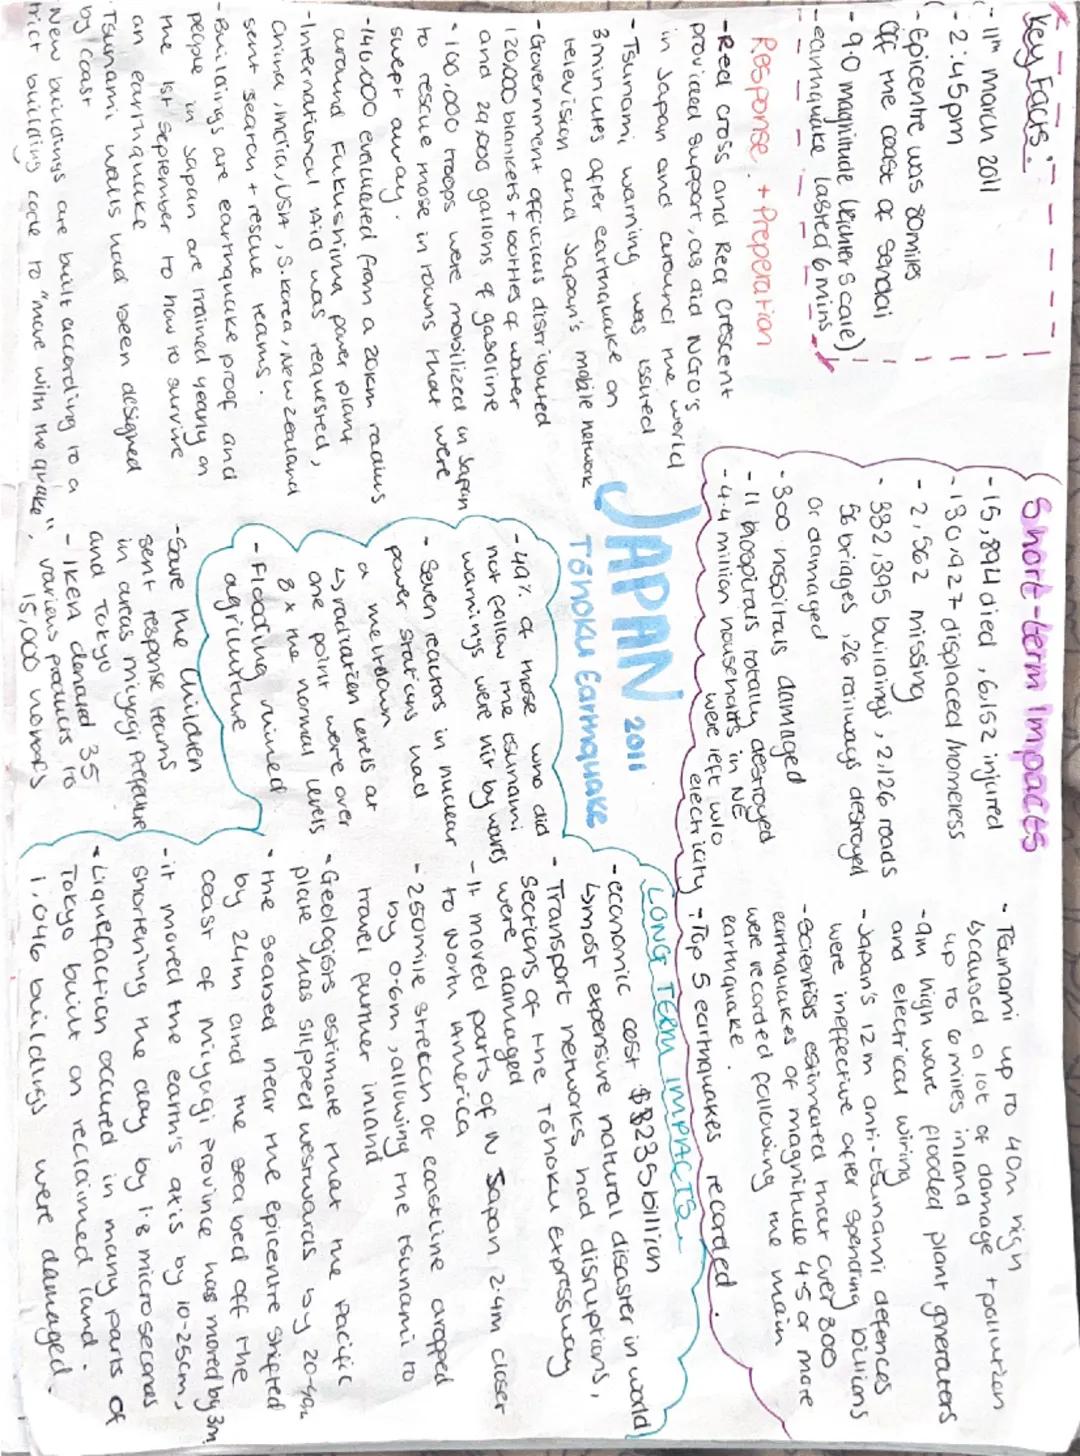 Key Facts:
- 11th march 2011
- 2:45pm
- Epicentre was 80miles
off the coast of Sendai
- 9.0 magnitude (Richter Scale)
- earthquake lasted 6 mins
Response: + Preperation
- Red cross and Red Crescent
provided support, as did NGO's
in Japan and around the world
- Tsunami warning was issued
3minutes after earthquake on
television and Japan's mobile network
- Government officials distributed
120,000 blankets + bottles of water
and 29,000 gallons of gasoline
• 100,000 troops were mobilized in Japan
to rescue those in towns that were
swept away.
- 140,000 evacuated from a 20km radius
around Fukushima power plant
- International Aid was requested,
China, India, USA, S.Korea, New Zealand
sent search + rescue teams.
- Buildings are earthquake proof and
people in Japan are trained yearly on
the 1st September to how to survive
an earthquake
- Tsunami walls had been designed
by coast
New buildings are built according to a
rict building code to "move with the quake".
Short-term Impacts
- 15,894 died, 6,152 injured
- 130,927 displaced/homeless
- 2,562 missing
- 332,395 buildings, 2,126 roads
56 bridges, 26 railways destroyed
or damaged
- 300 hospitals damaged
- 11 hospitals totally destroyed
- 4.4 million households in NE
were left w/o
electricity
- Tsunami up to 40m high
↳caused a lot of damage + pollution
up to 6 miles inland
- 9m high wave flooded plant generators
and electrical wiring
- Japan's 12m anti-tsunami defences
were ineffective after spending billions
- Scientists estimated that over 800
earthquakes of magnitude 4.5 or more
were recorded following the main
earthquake.
- Top 5 earthquakes recorded.
JAPAN 2011
Tōhoku Earthquake
LONG TERM IMPACTS
- economic cost $235billion
↳most expensive natural disaster in world
- Transport networks had disruptions,
sections of the Tōhoku expressway
were damaged
- It moved parts of N Japan 2.4m closer
to North America
- 250mile stretch of coastline dropped
by 0.6m, allowing the tsunami to
travel further inland
• Geologists estimate that the Pacific
plate has slipped westwards by 20-40m
• the seabed near the epicentre shifted
by 24m and the seabed off the
coast of Miyagi province has moved by 3m
- it moved the earth's axis by 10-25cm,
shortening the day by 1.8 microseconds
• Liquefaction occured in many parts of
Tokyo built on reclaimed land.
1,046 buildings were damaged.
- 49% of those who did
not follow the tsunami
warnings were hit by waves
- Seven reactors in nuclear
power stations had
a meltdown
↳radiation levels at
one point were over
8x the normal levels
- Flooding ruined
agriculture
- Save the Children
sent response teams
in areas Miyagi Prefecture
and Tokyo
- IKEA donated 35
various products to
15,000 homes